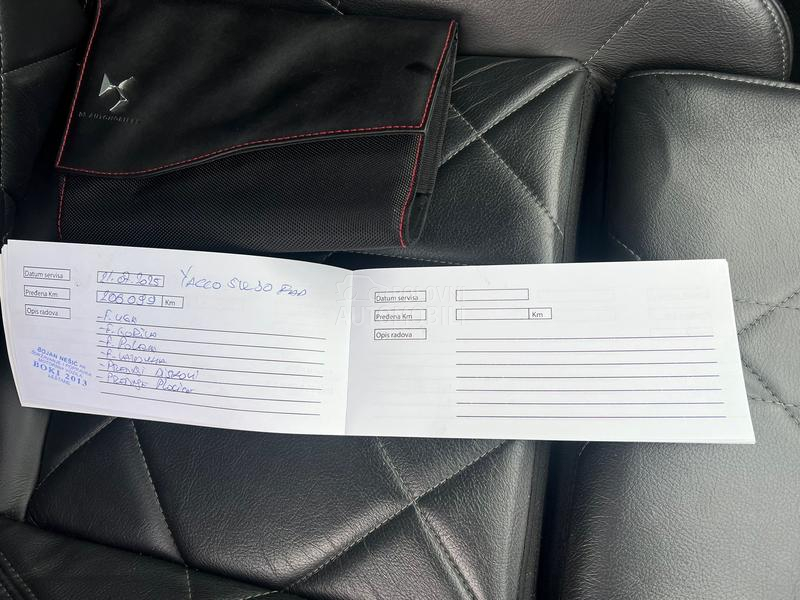 DS AUTOMOBILES
Datum servisa 21.07.2025 YACCO 5W30 FAP
Pređena Km 206.099 Km
Opis radova
- F. ULJA
- F. GORIVA
- F. POLENA
- F. VAZDUHA
- PREDNJI DISKOVI
- PREDNJE PLOČICE
BOJAN NEŠIĆ PR
BOKI 2013
Datum servisa
Pređena Km Km
Opis radova